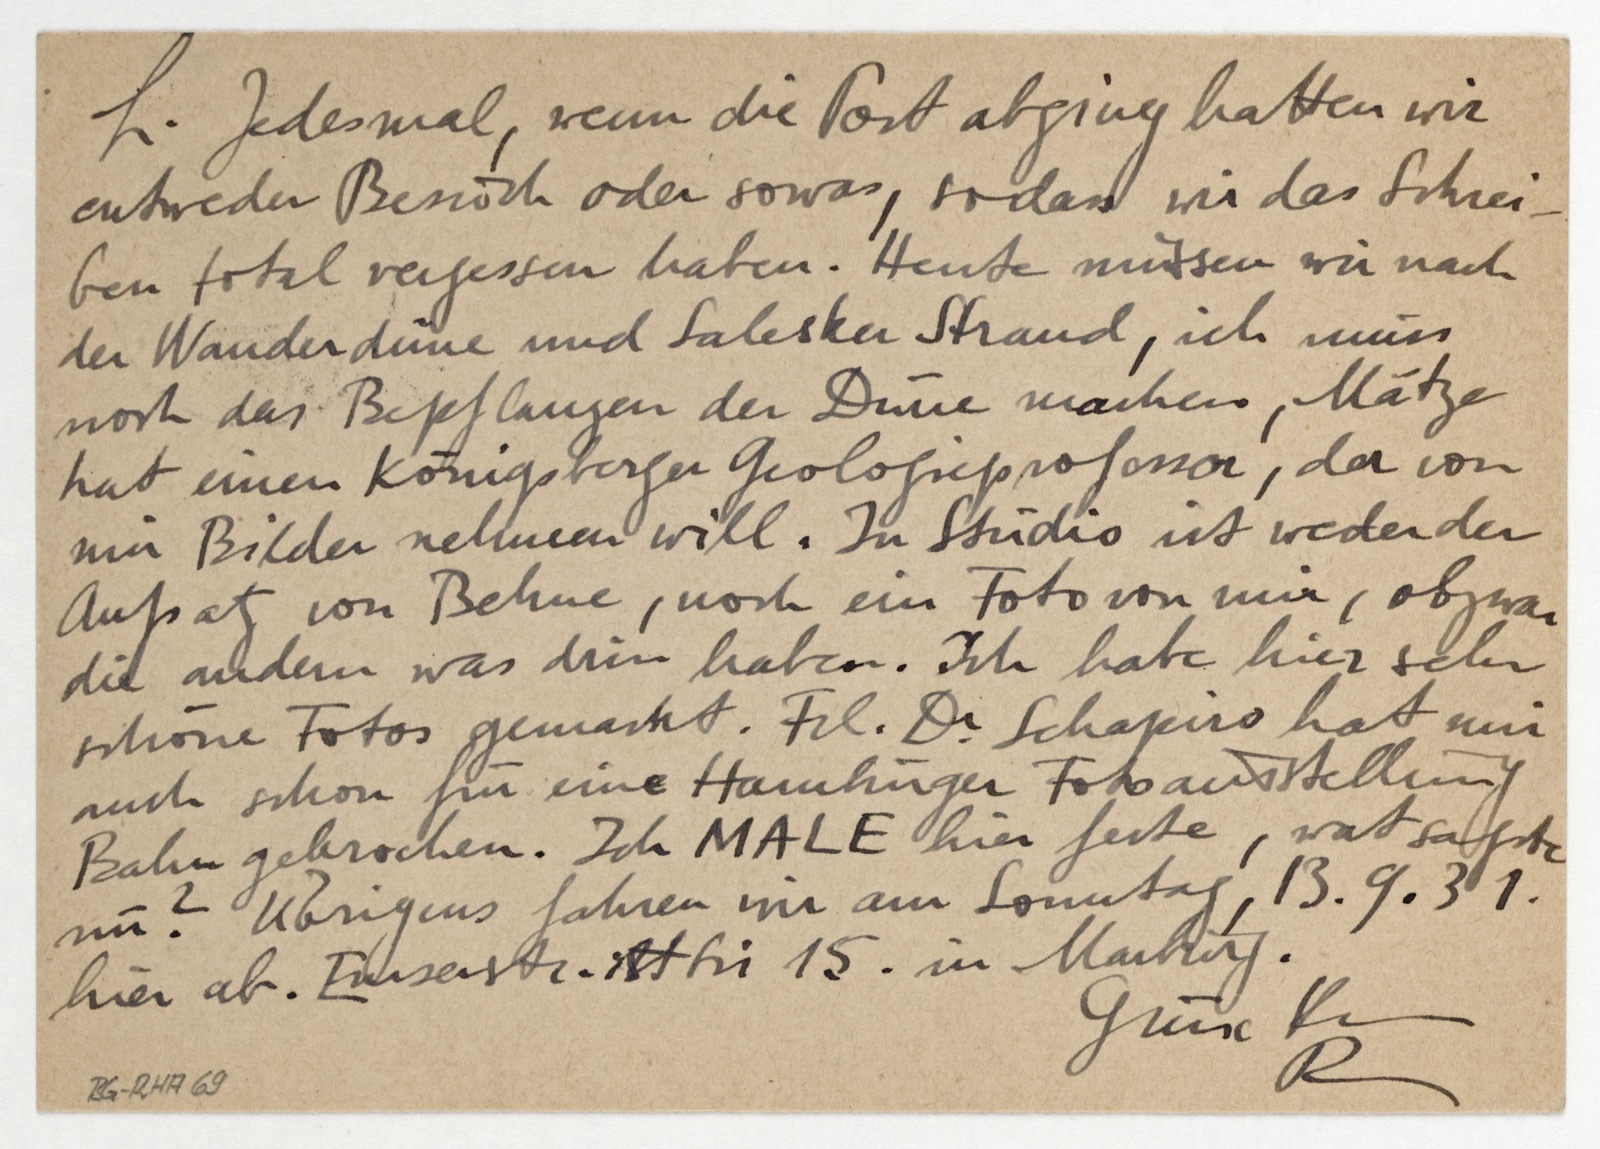 L. Jedesmal, wenn die Post abging hatten wir
entweder Besuch oder sowas, sodass wir das Schrei-
ben total vergessen haben. Heute müssen wir nach
der Wanderdüne und Salesker Strand, ich muss
noch das Bepflanzen der Düne machen, Mätze
hat einen Königsberger Geologieprofessor, der von
mir Bilder nehmen will. In Studio ist weder der
Aufsatz von Behne, noch ein Foto von mir, obzwar
die andern was drin haben. Ich habe hier sehr
schöne Fotos gemacht. Frl. Dr. Schapiro hat mir
auch schon für eine Hamburger Fotoausstellung
Bahn gebrochen. Ich MALE hier feste, wat sagste
nu? Übrigens fahren wir am Sonntag, 13.9.31.
hier ab. bis 15. in Marburg.
Grüsse
R
BG-RHA 69